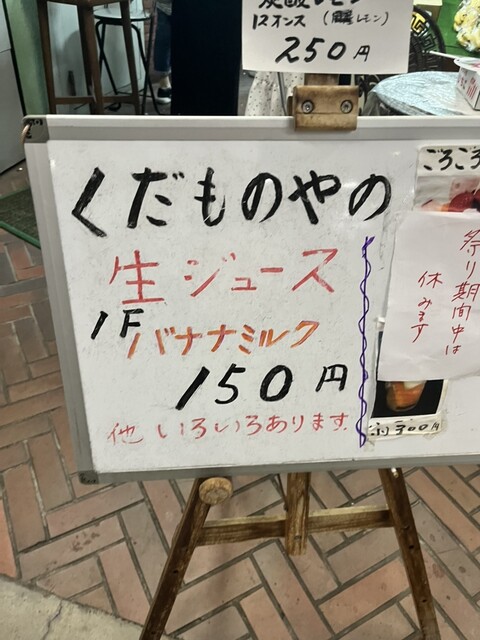 炭酸レモン
12オンス
250円
くだものやの
生ジュース
1F
バナナミルク
150円
他いろいろあります
ごろごろ
祭り期間中は
休みます